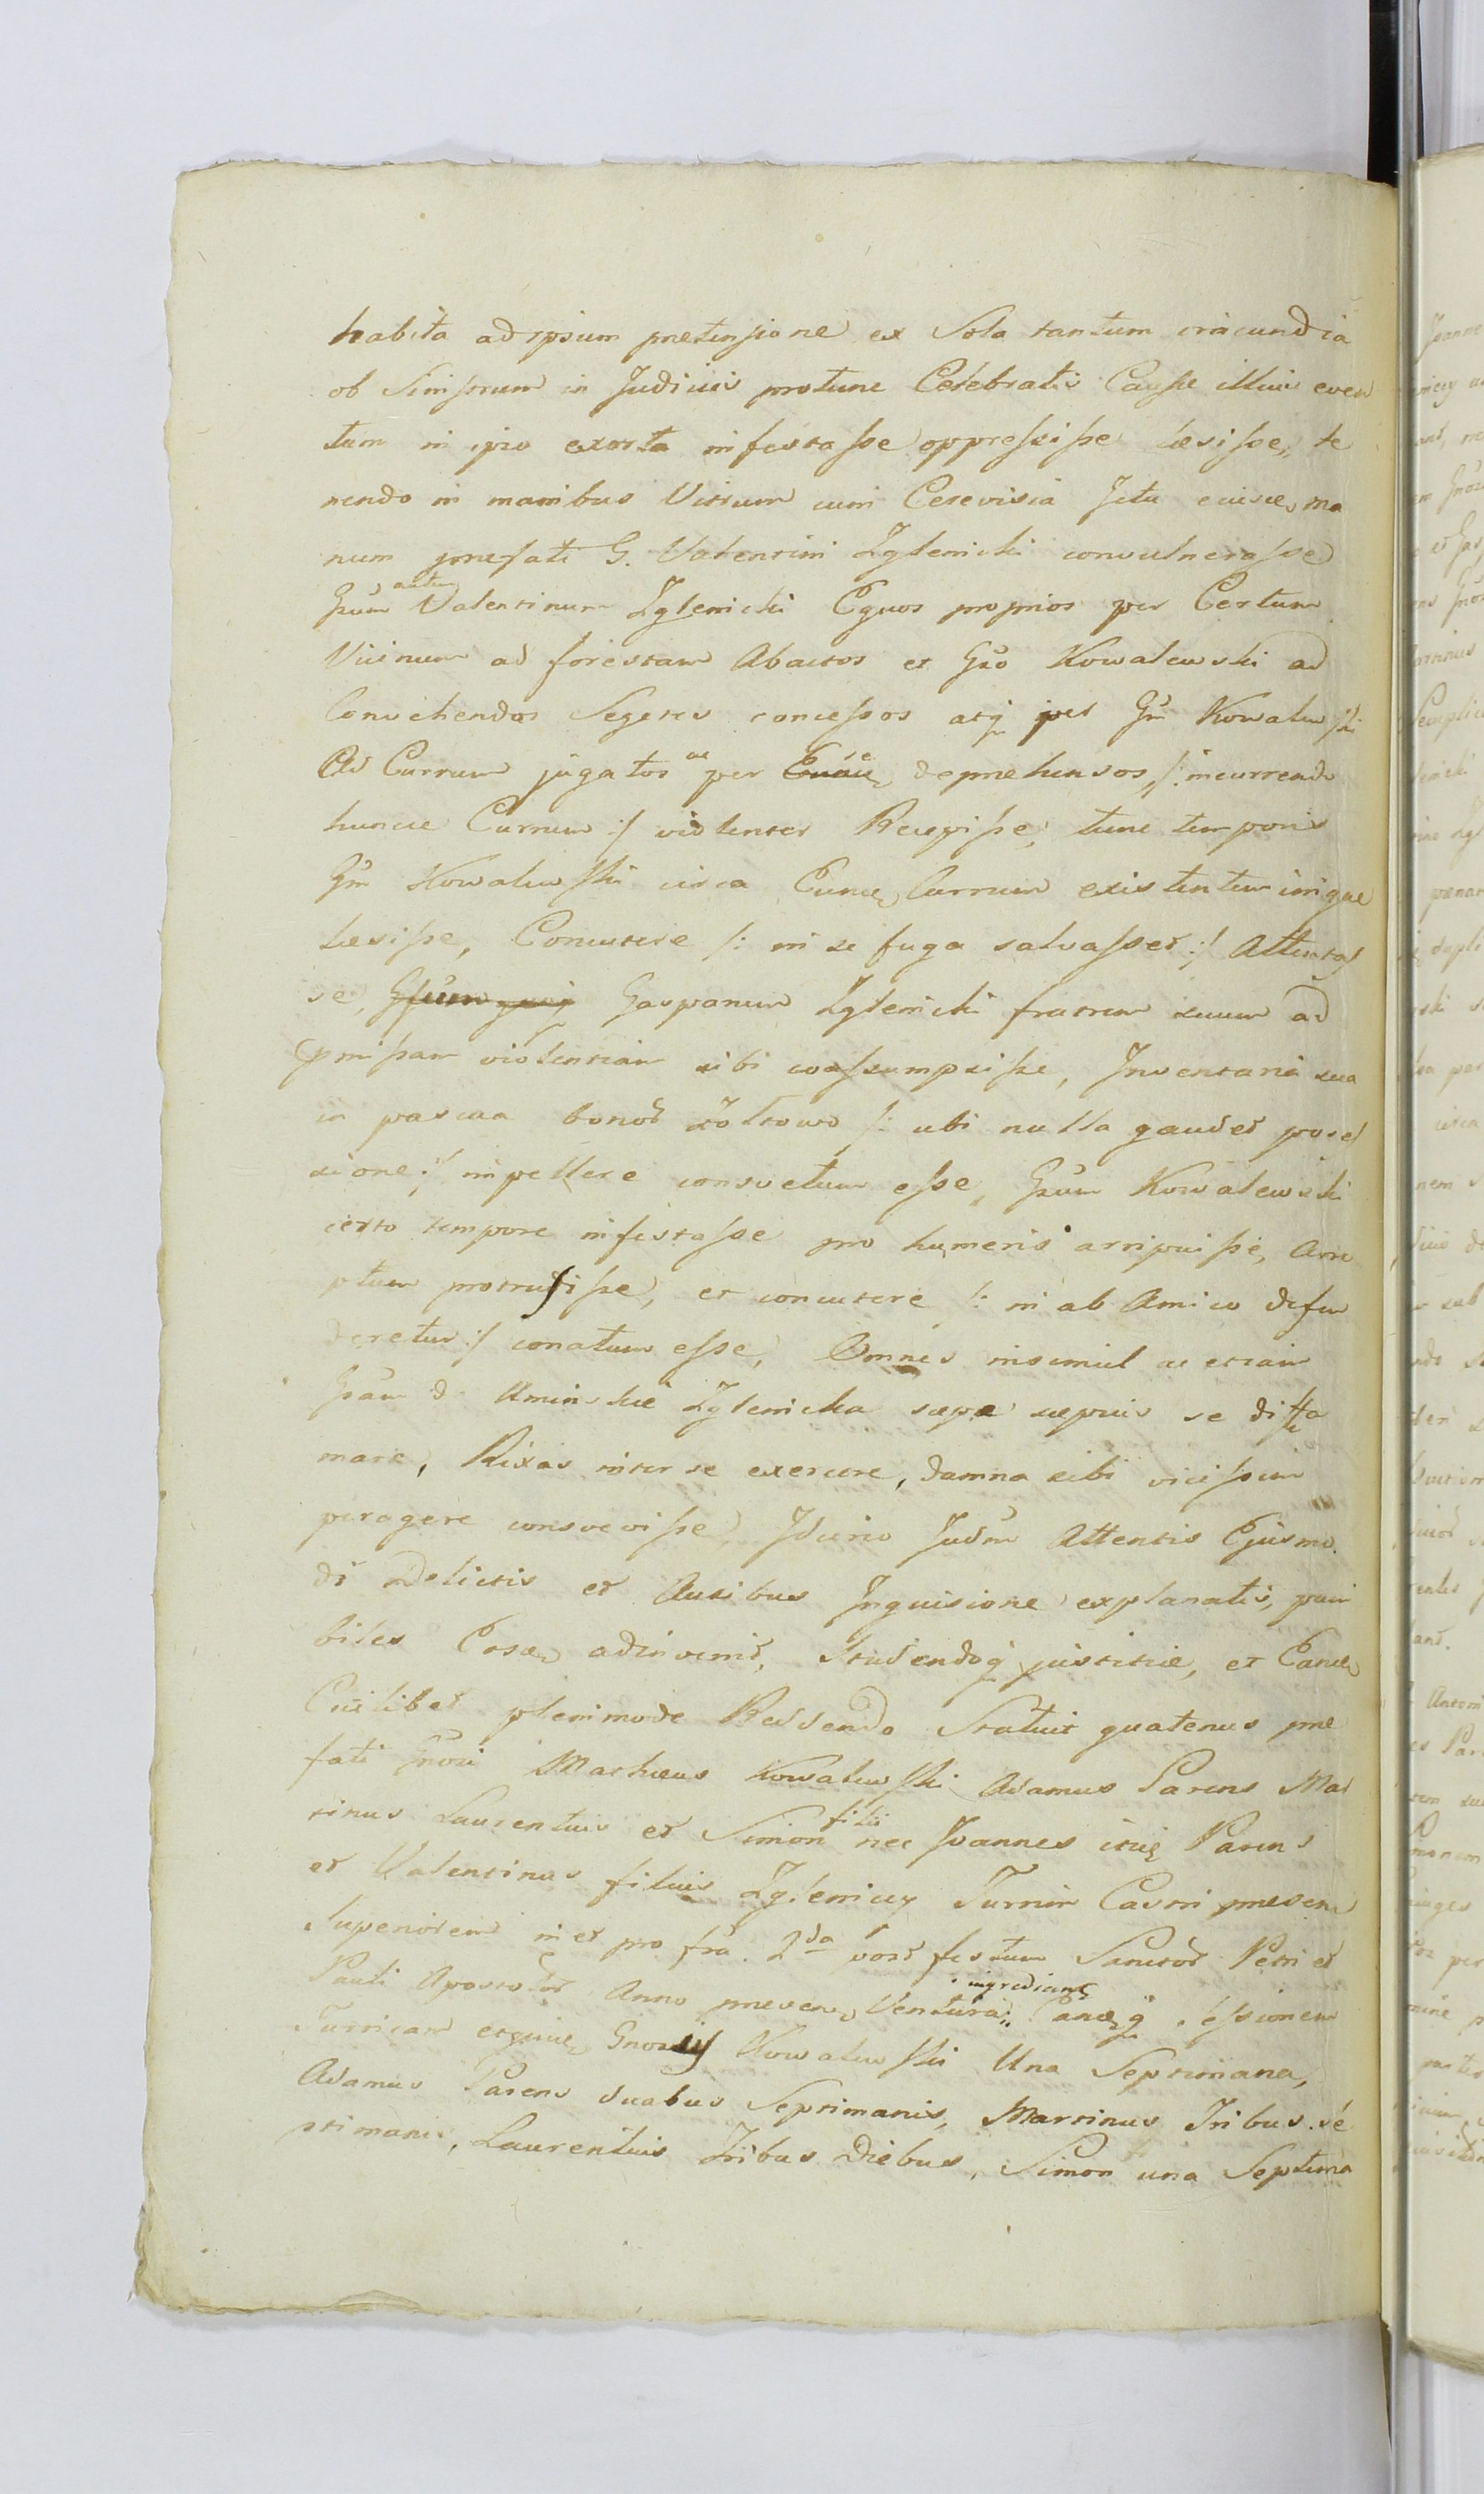 habita ad ipsum prætensione ex Sola tantum iracundia
ob Sinistrum in Judiciis protunc Celebratis Causæ illius even
tum in ipso exorta infestasse oppressisse læsisse, te
nendo in manibus Vitrum cum Cerevisia Jctu ma
num præfati G. Valentini Zglenicki convulnerasse
Gsum autem Valentinum Zglenicki Equos proprios per Certum
Vicinum ad forestam Abactos et Gso Kowalewski ad
Convehendos Segetes concessos atq per Gm Kowalewski
Ad Currum jugatos ac per deprehensos, /: incurrendo
huncce Currum :/ violenter Recepisse, tunc temporis
Gm Kowalewski circa Currum existentem
læsisse, Concutere /: ni se fuga salvasset :/ Attentas
se, Gasparum Zglenicki fratrem suum ad
præmissam violentiam sibi coassumpsisse, Inventaria sua
in pascua bonor Zoltowo /: ubi nulla gaudet posses
sione :/ impellere consvetum esse, Gsum Kowalewski
certo tempore infestasse pro humeris arripuisse, Arre
ptum protrusisse, et concutere /: ni ab Amico defen
deretur :/ conatum esse, Omnes insimul ac etiam
Gsam d Zglenicka sæpe sæpius se diffa
mare, Rixas inter se exercere, damna sibi vicissim
peragere consvevisse, Idcirco Judm Attentis Ejusmo
di Delictis et Ausibus Inquisitione explanatis, puni
biles Eosd adinvenit, Studendoq justitiæ, et Eand
Cuilibet plenimode Reddendo Statuit quatenus præ
fati Gnosi Mathæus Kowalewski Adamus Parens Mar
tinus Laurentius et Simon filii nec Joannes itid Parens
et Valentinus filius Zgleniccy Turrim Castri præsen
Superiorem in et pro fra 2da post festum Sanctor Petri et
Pauli Apostolor Anno præsen Ventura ingrediant Eandq sessionem
Turricam Gnosus Kowalewski Una Septimana,
Adamus Parens duabus Septimanis, Martinus Tribus Se
ptimanis, Laurentius Tribus Diebus, Simon una Septima